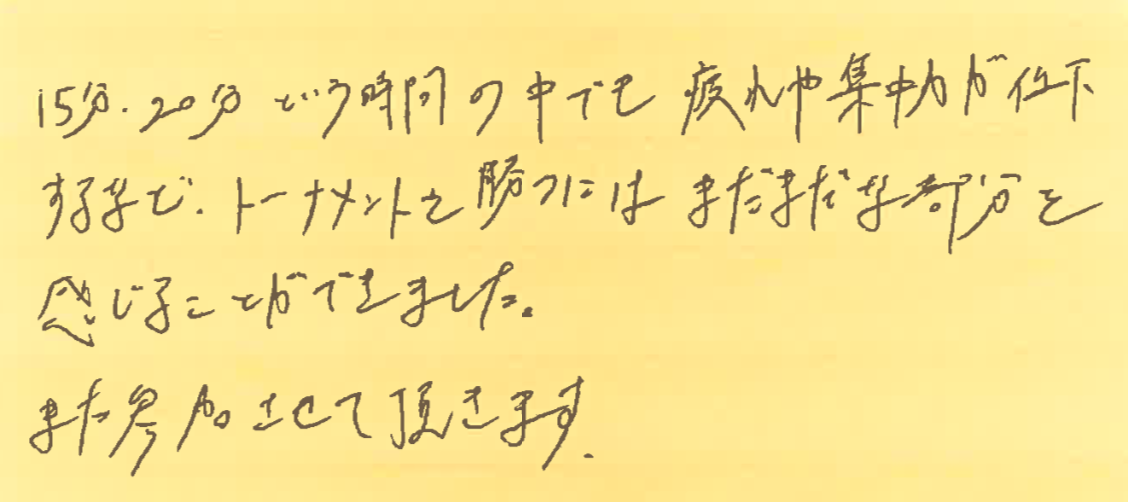 15分.20分という時間の中でも疲れや集中力が低下
するなど.トーナメントを勝つにはまだまだな部分を
感じることができました。
また参加させて頂きます.